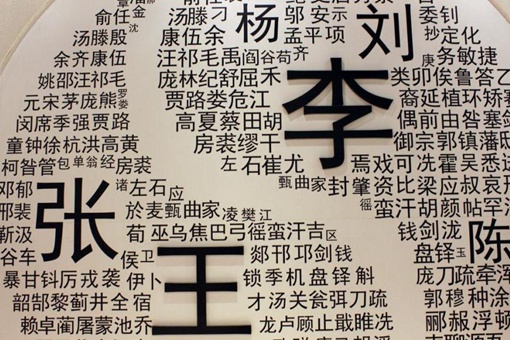 俞任金
汤滕刁
杨
邬安示
刘
委钊
汤滕殷
沈
康伍余
孟平项
抄定化
余齐康伍
汪祁毛禹
阎谷茹
齐
庚
务敏捷
姚邵汪祁毛
庞林纪舒屈禾
李
类卯俟鲁答乙
元宋茅庞熊
罗娄
贾路娄危江
裔延植环矫赛
闵席季强贾路
高夏蔡田胡
偶前由咎塞剑
童钟徐杭洪高黄
房裘缪干
御宗郭镇藩邸
柯昝管
包单翁经
房裘
左
石崔尤
焉戏可冼霍吴悉近
邓郁
张
诸
左石
应
甄
曲家
封肇资比梁应叔哀邢
邢裴
於麦甄曲家
凌樊江
徭
蛮汗胡颜帖罕洪
靳汲
荀
巫乌焦巴弓徭蛮汗吉
区
钱剑泷
陈
谷车
侯
卫
王
郯邗邛剑钱
盘铎
玉
暴甘钭厉戎
袭
伊卜
锁季机盘铎斛
庞刀疏牵浑
韶郜黎蓟井全宿
才汤关瓮弭刀疏
郭穆种涂
赖卓蔺屠蒙池乔
龙卢顾止戢睢冼
郦郝浮顿